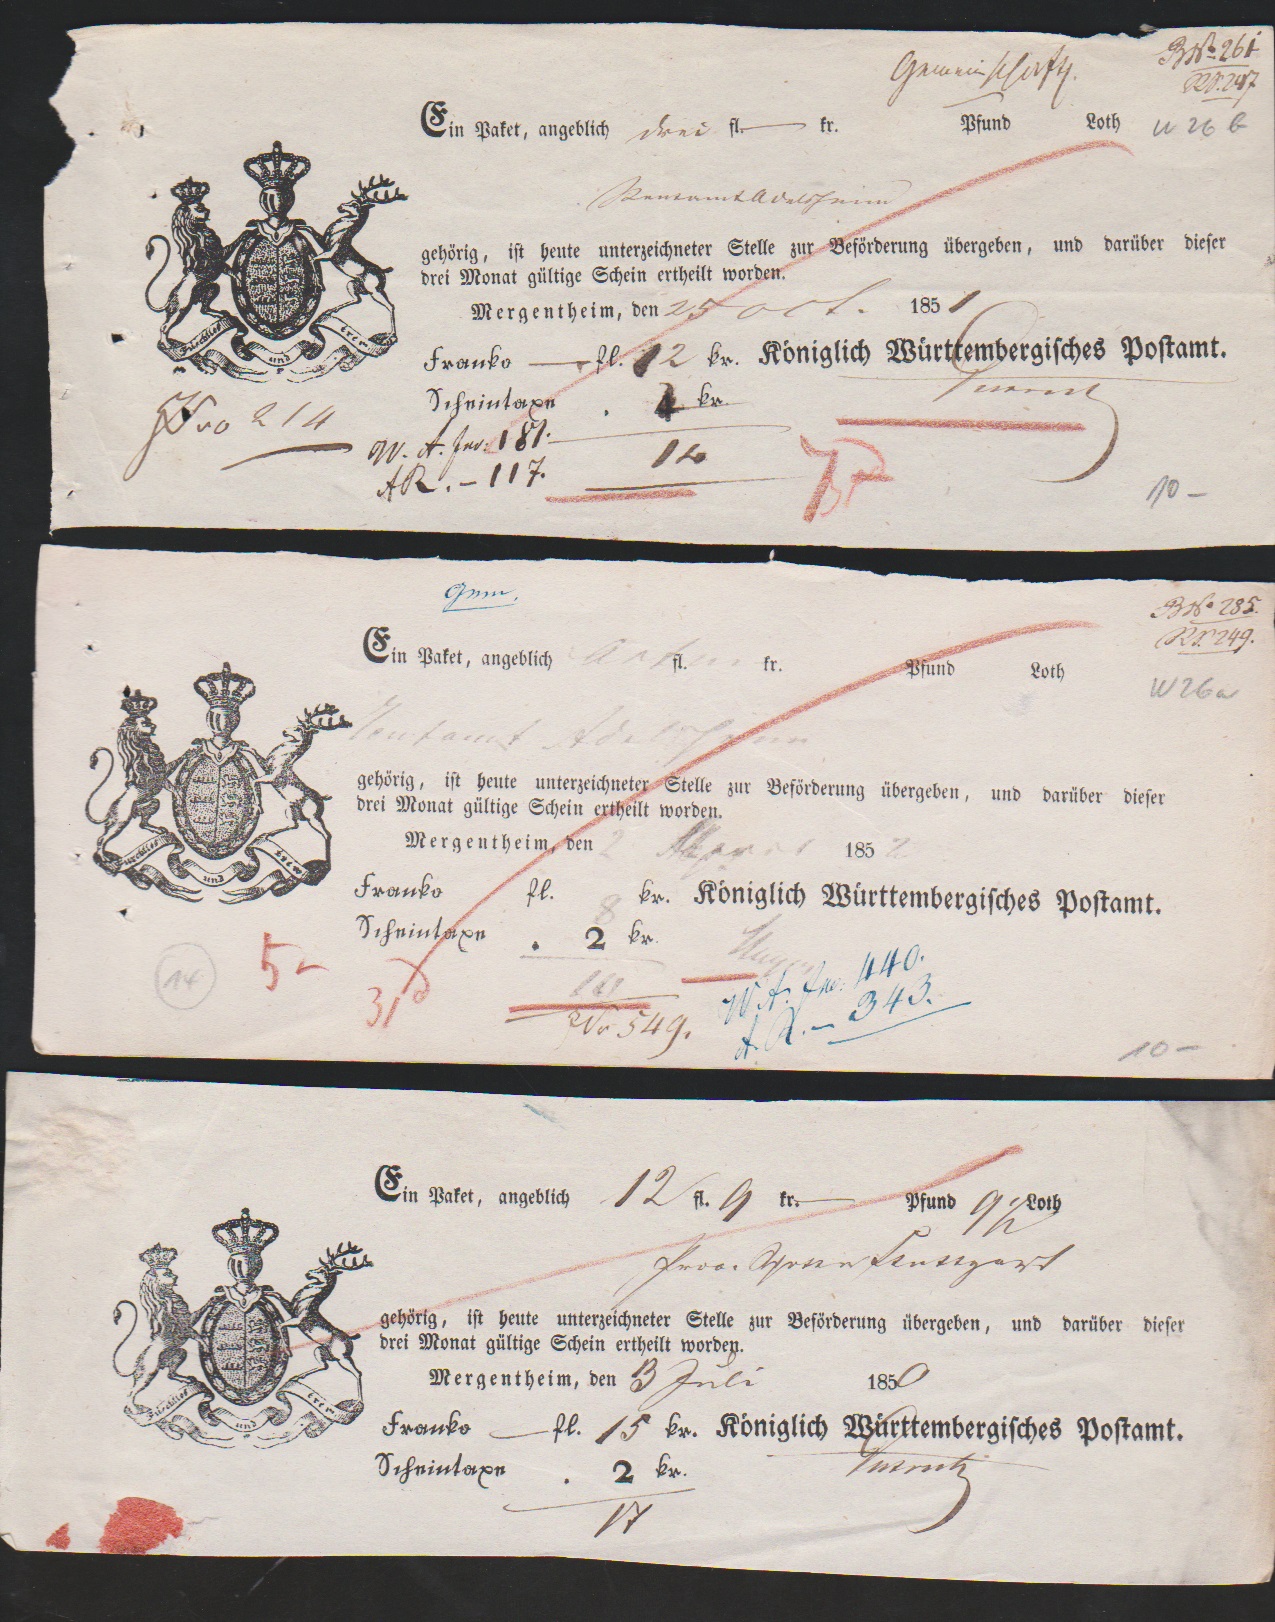 Gemeinschaftl.
BNo. 261
RS. 247
W 26 b
Ein Paket, angeblich drei fl. kr. Pfund Loth
Rentamt Adelsheim
gehörig, ist heute unterzeichneter Stelle zur Beförderung übergeben, und darüber dieser
drei Monat gültige Schein ertheilt worden.
Mergentheim, den 25 Oct. 1851
Franko fl. 12 kr. Königlich Württembergisches Postamt.
Scheintaxe . kr.
Furchtlos und trew
Nro 214
W. A. 181.
AR. - 117.
10 -
Gem.
BNo 285.
RS. 249.
W 26 a
Ein Paket, angeblich fl. kr. Pfund Loth
Rentamt Adelsheim
gehörig, ist heute unterzeichneter Stelle zur Beförderung übergeben, und darüber dieser
drei Monat gültige Schein ertheilt worden.
Mergentheim, den 2 1852
Franko fl. 8 kr. Königlich Württembergisches Postamt.
Scheintaxe . 2 kr.
Furchtlos und trew
14
5 -
Nr 549.
W. A. 440.
A. R. - 343.
10 -
Ein Paket, angeblich 12 fl. 9 kr. Pfund Loth
Stuttgart
gehörig, ist heute unterzeichneter Stelle zur Beförderung übergeben, und darüber dieser
drei Monat gültige Schein ertheilt worden.
Mergentheim, den 3 Juli 1850
Franko fl. 15 kr. Königlich Württembergisches Postamt.
Scheintaxe . 2 kr.
Furchtlos und trew
17